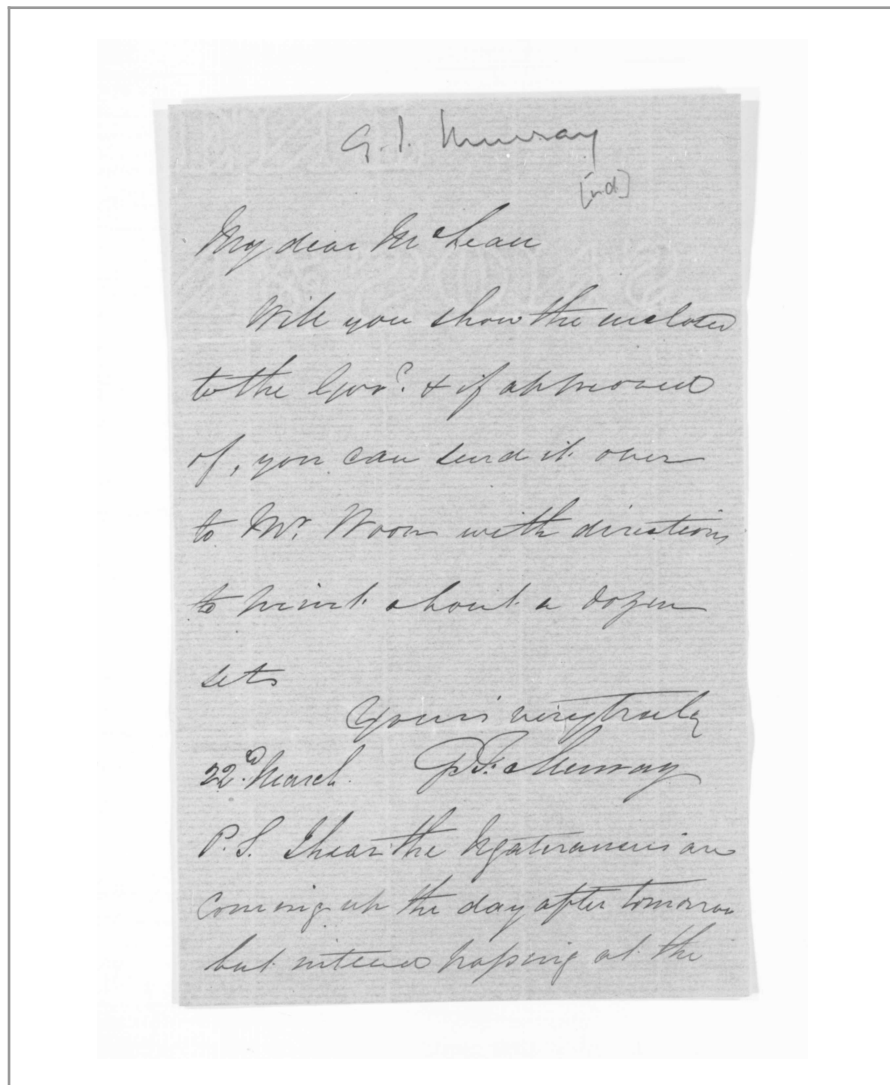 G. I. Murray
[nd]
My dear McLean
Will you show the inclosed
to the Govr. & if approved
of, you can send it over
to Mr. Woon with directions
to print about a dozen
sets
Yours very truly
22d. March. Murray
P.S. I hear the are
coming up the day after tomorrow
but intend at the